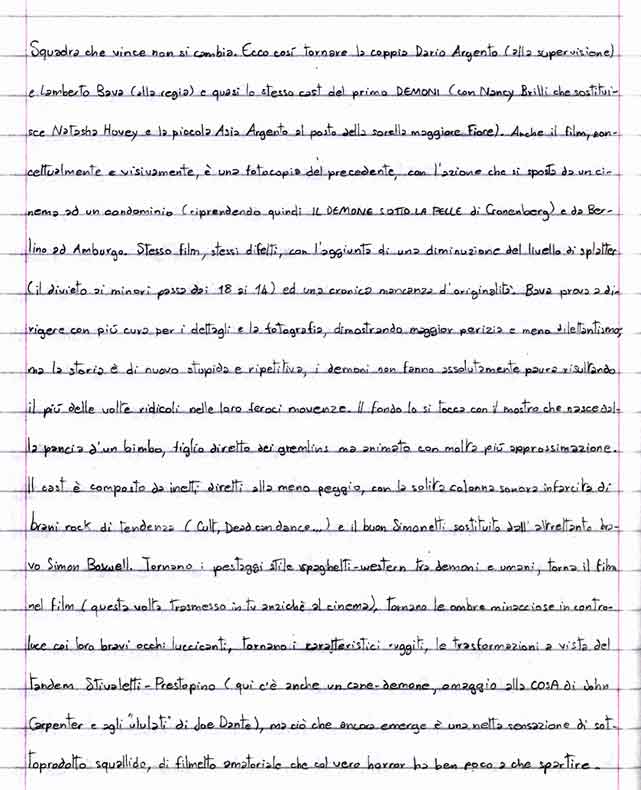 Squadra che vince non si cambia. Ecco così tornare la coppia Dario Argento (alla supervisione)
e Lamberto Bava (alla regia) e quasi lo stesso cast del primo DEMONI (con Nancy Brilli che sostitui-
sce Natasha Hovey e la piccola Asia Argento al posto della sorella maggiore Fiore). Anche il film, con-
cettualmente e visivamente, è una fotocopia del precedente, con l'azione che si sposta da un ci-
nema ad un condominio (riprendendo quindi IL DEMONE SOTTO LA PELLE di Cronenberg) e da Ber-
lino ad Amburgo. Stesso film, stessi difetti, con l'aggiunta di una diminuzione del livello di splatter
(il divieto ai minori passa dai 18 ai 14) ed una cronica mancanza d'originalità. Bava prova a di-
rigere con più cura per i dettagli e la fotografia, dimostrando maggior perizia e meno dilettantismo,
ma la storia è di nuovo stupida e ripetitiva, i demoni non fanno assolutamente paura risultando
il più delle volte ridicoli nelle loro feroci movenze. Il fondo lo si tocca con il mostro che nasce dal-
la pancia d'un bimbo, figlio diretto dei gremlins ma animato con molta più approssimazione.
Il cast è composto da inetti diretti alla meno peggio, con la solita colonna sonora infarcita di
brani rock di tendenza (Cult, Dead can dance...) e il buon Simonetti sostituito dall'altrettanto bra-
vo Simon Boswell. Tornano i pestaggi stile spaghetti-western tra demoni e umani, torna il film
nel film (questa volta trasmesso in tv anzichè al cinema), tornano le ombre minacciose in contro-
luce coi loro bravi occhi luccicanti, tornano i caratteristici ruggiti, le trasformazioni a vista del
tandem Stivaletti-Prestopino (qui c'è anche un cane-demone, omaggio alla COSA di John
Carpenter e agli "ululati" di Joe Dante), ma ciò che ancora emerge è una netta sensazione di sot-
toprodotto squallido, di filmetto amatoriale che col vero horror ha ben poco a che spartire.